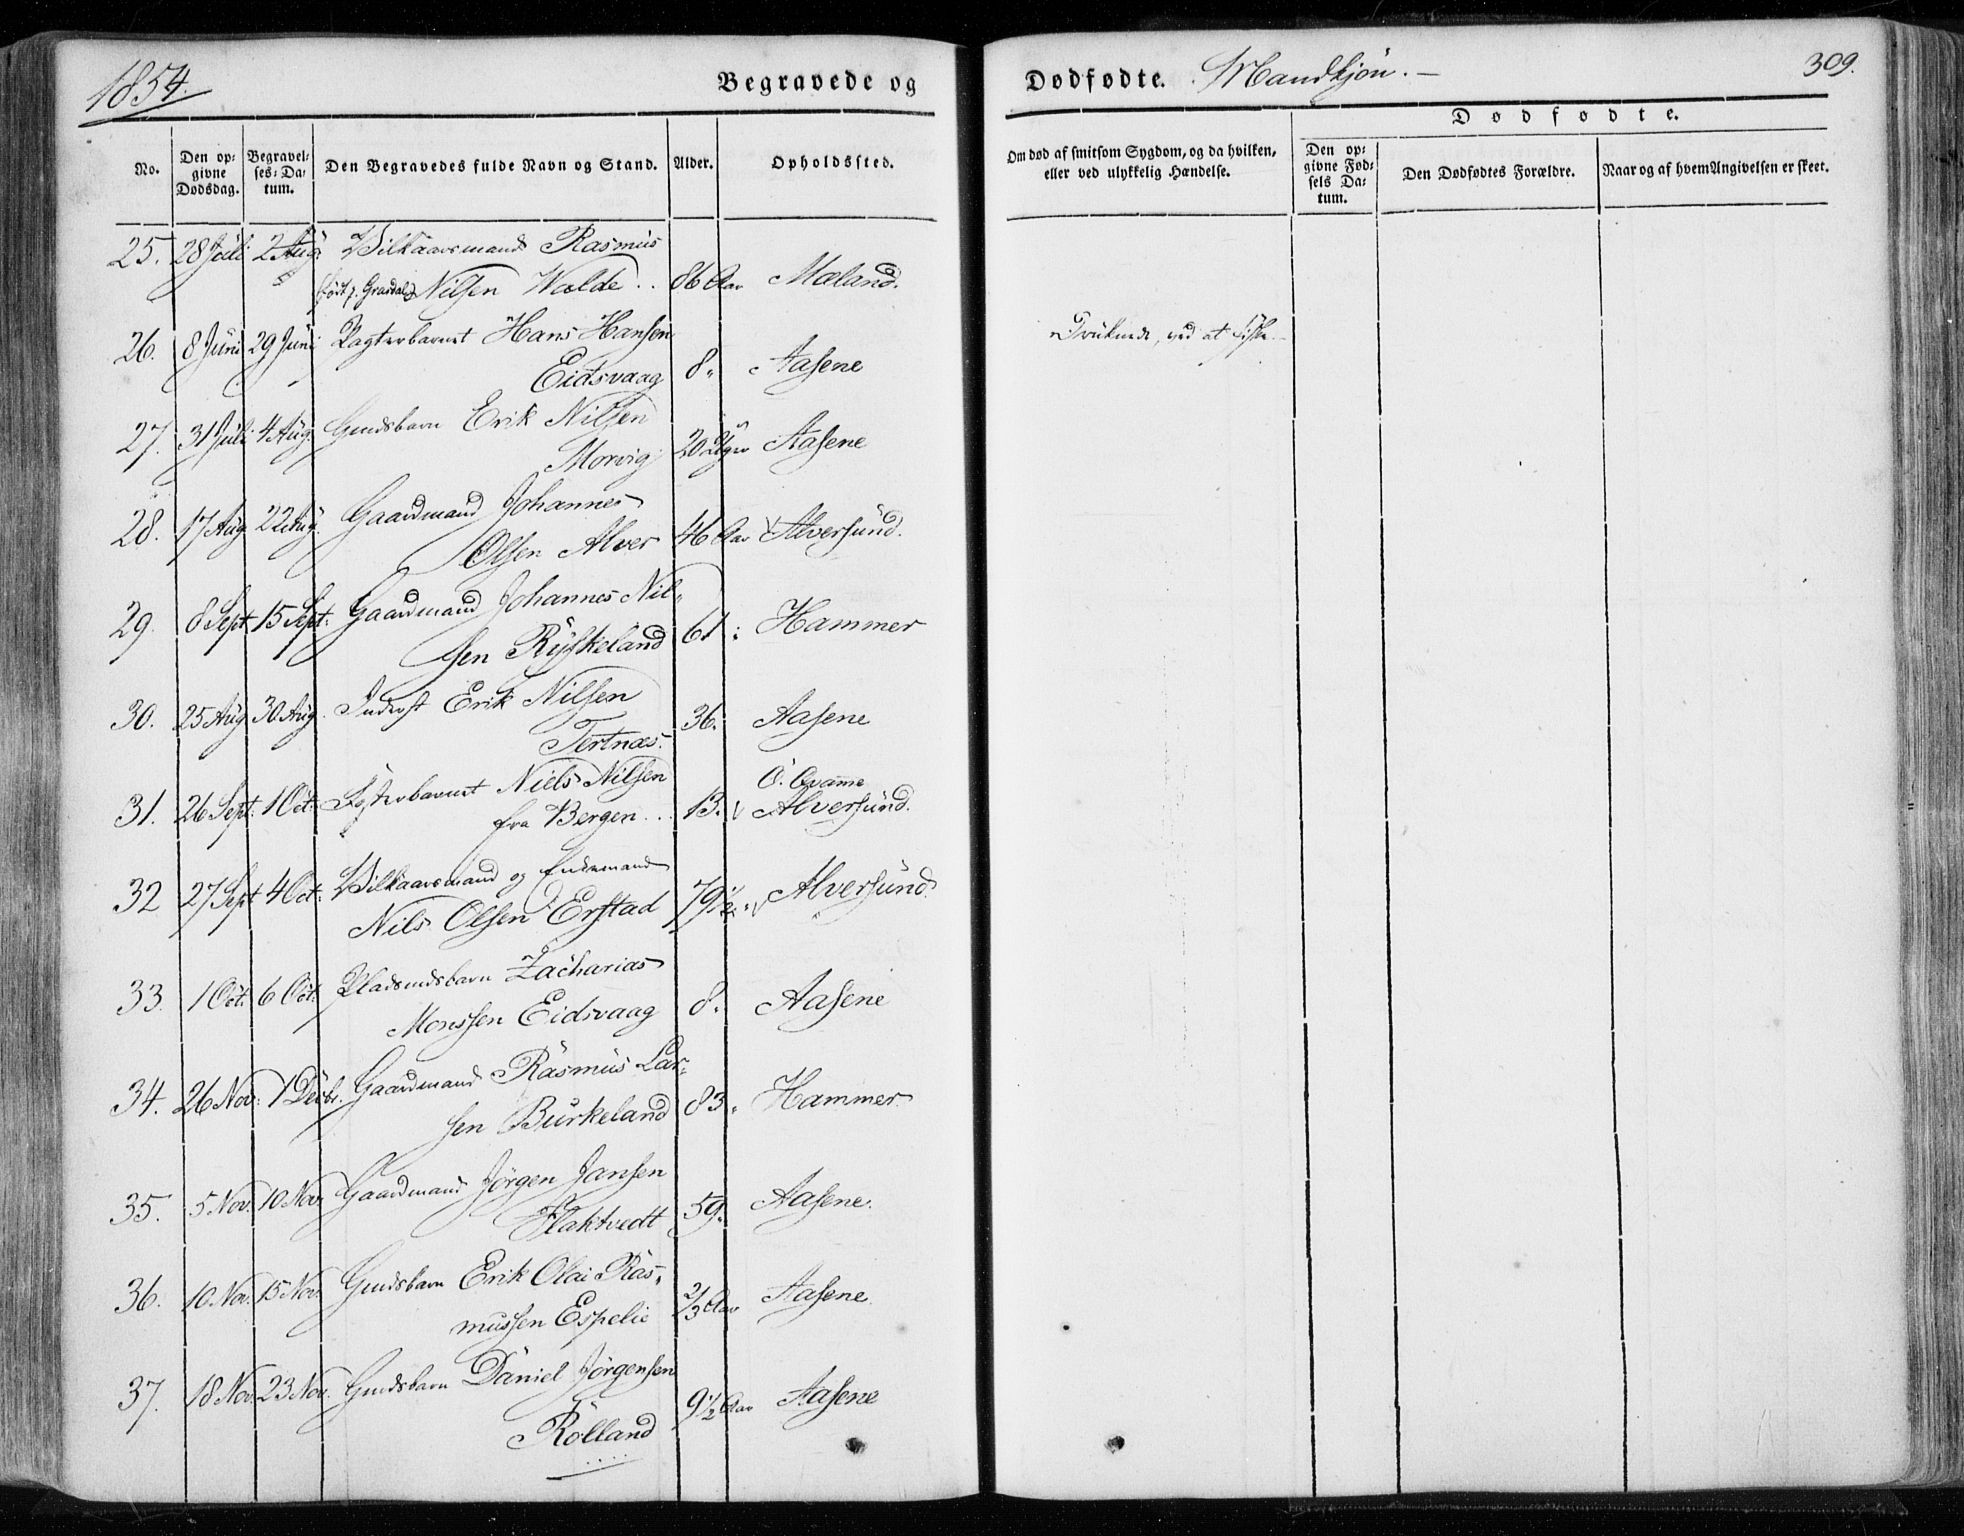 1854.
Begravede og
Dødfødte. Mandkjön. —
309.
Dødfødte.
No.
Den opgivne Dødsdag.
Begravelses-Datum.
Den Begravedes fulde Navn og Stand.
Alder.
Opholdssted.
Om død af smitsom Sygdom, og da hvilken, eller ved ulykkelig Hændelse.
Den opgivne Fødsels Datum.
Den Dødfødtes Forældre.
Naar og af hvem Angivelsen er skeet.
25. 28 Juli 2 Aug: Vilkaarsmand Rasmus
Nilsen Walde .. 86 Aar Mæland.
26. 8 Juni 29 Juni Hans Hansen
Eidsvaag 8 " Aasene
Druknede, ved at fiske.
27. 31 Juli 4 Aug. Gmdsbarn Erik Nilsen
Morvig 20 Uger Aasene
28. 17 Aug 22 Aug. Gaardmand Johannes
Olsen Alver 46 Aar Alversund.
29. 8 Sept 15 Sept. Gaardmand Johannes Nil-
sen Ryskeland 61 : Hammer
30. 25 Aug 30 Aug. Inderst Erik Nilsen
Tertnæs. 36. Aasene
31. 26 Sept. 1 Oct. Fosterbarnet Niels Nilsen
Ö. Qvamme
fra Bergen . . . 13. Alversund.
32 27 Sept 4 Oct: Vilkaarsmand og Enkemand
Nils Olsen Erstad 79 1/2 " Alversund.
33. 1 Oct. 6 Oct. Pladsmdsbarn Zacharias
Monssen Eidsvaag 8. Aasene
34. 26 Nov. 1 Decbr. Gaardmand Rasmus Lar-
sen Burkeland 83. Hammer
35. 5 Nov. 10 Nov. Gaardmand Jörgen Jansen
Flaktvedt 59. Aasene.
36. 10 Nov. 15 Nov. Gmdsbarn Erik Olai Ras-
mussen Espelie 2/3 Aar Aasene.
37. 18 Nov. 23 Nov. Gmdsbarn Daniel Jörgensen
Rölland 9 1/2 Aar Aasene